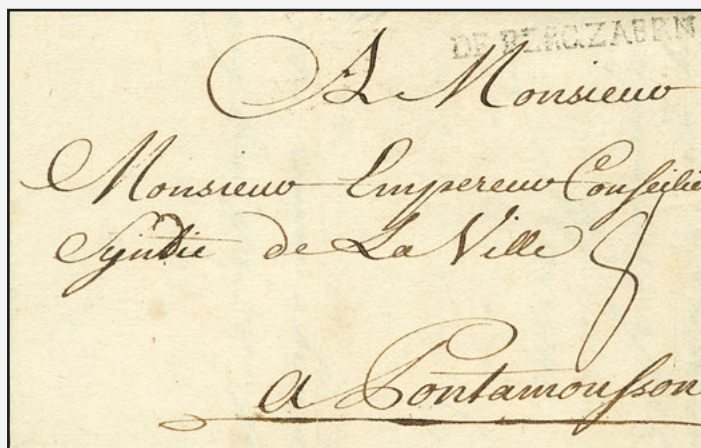 DE BERGZABERN
A Monsieur
Monsieur Empereur Conseilie
Syndic de La Ville
a Pontamousson